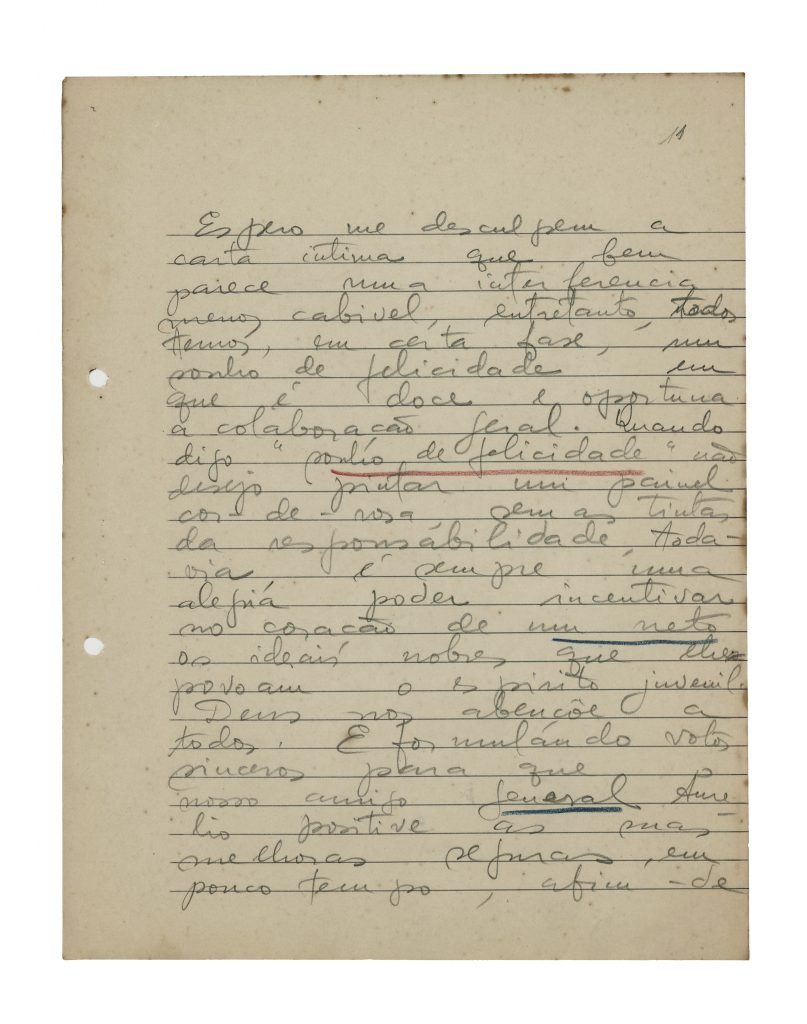 11
Espero me desculpem a
carta íntima que bem
parece uma interferencia
menos cabivel, entretanto, todos
temos, em certa fase, um
sonho de felicidade em
que é doce e oportuna
a colaboração geral. Quando
digo "sonho de felicidade" não
desejo pintar um painel
cor-de-rosa sem as tintas
da responsabilidade. Toda-
via é sempre uma
alegria poder incentivar
no coração de um neto
os ideais nobres que lhe
povoam o espirito juvenil.
Deus nos abençõe a
todos. E formulando votos
sinceros para que o
nosso amigo general Auré
lio positive as suas
melhoras seguras, em
pouco tempo, afim-de